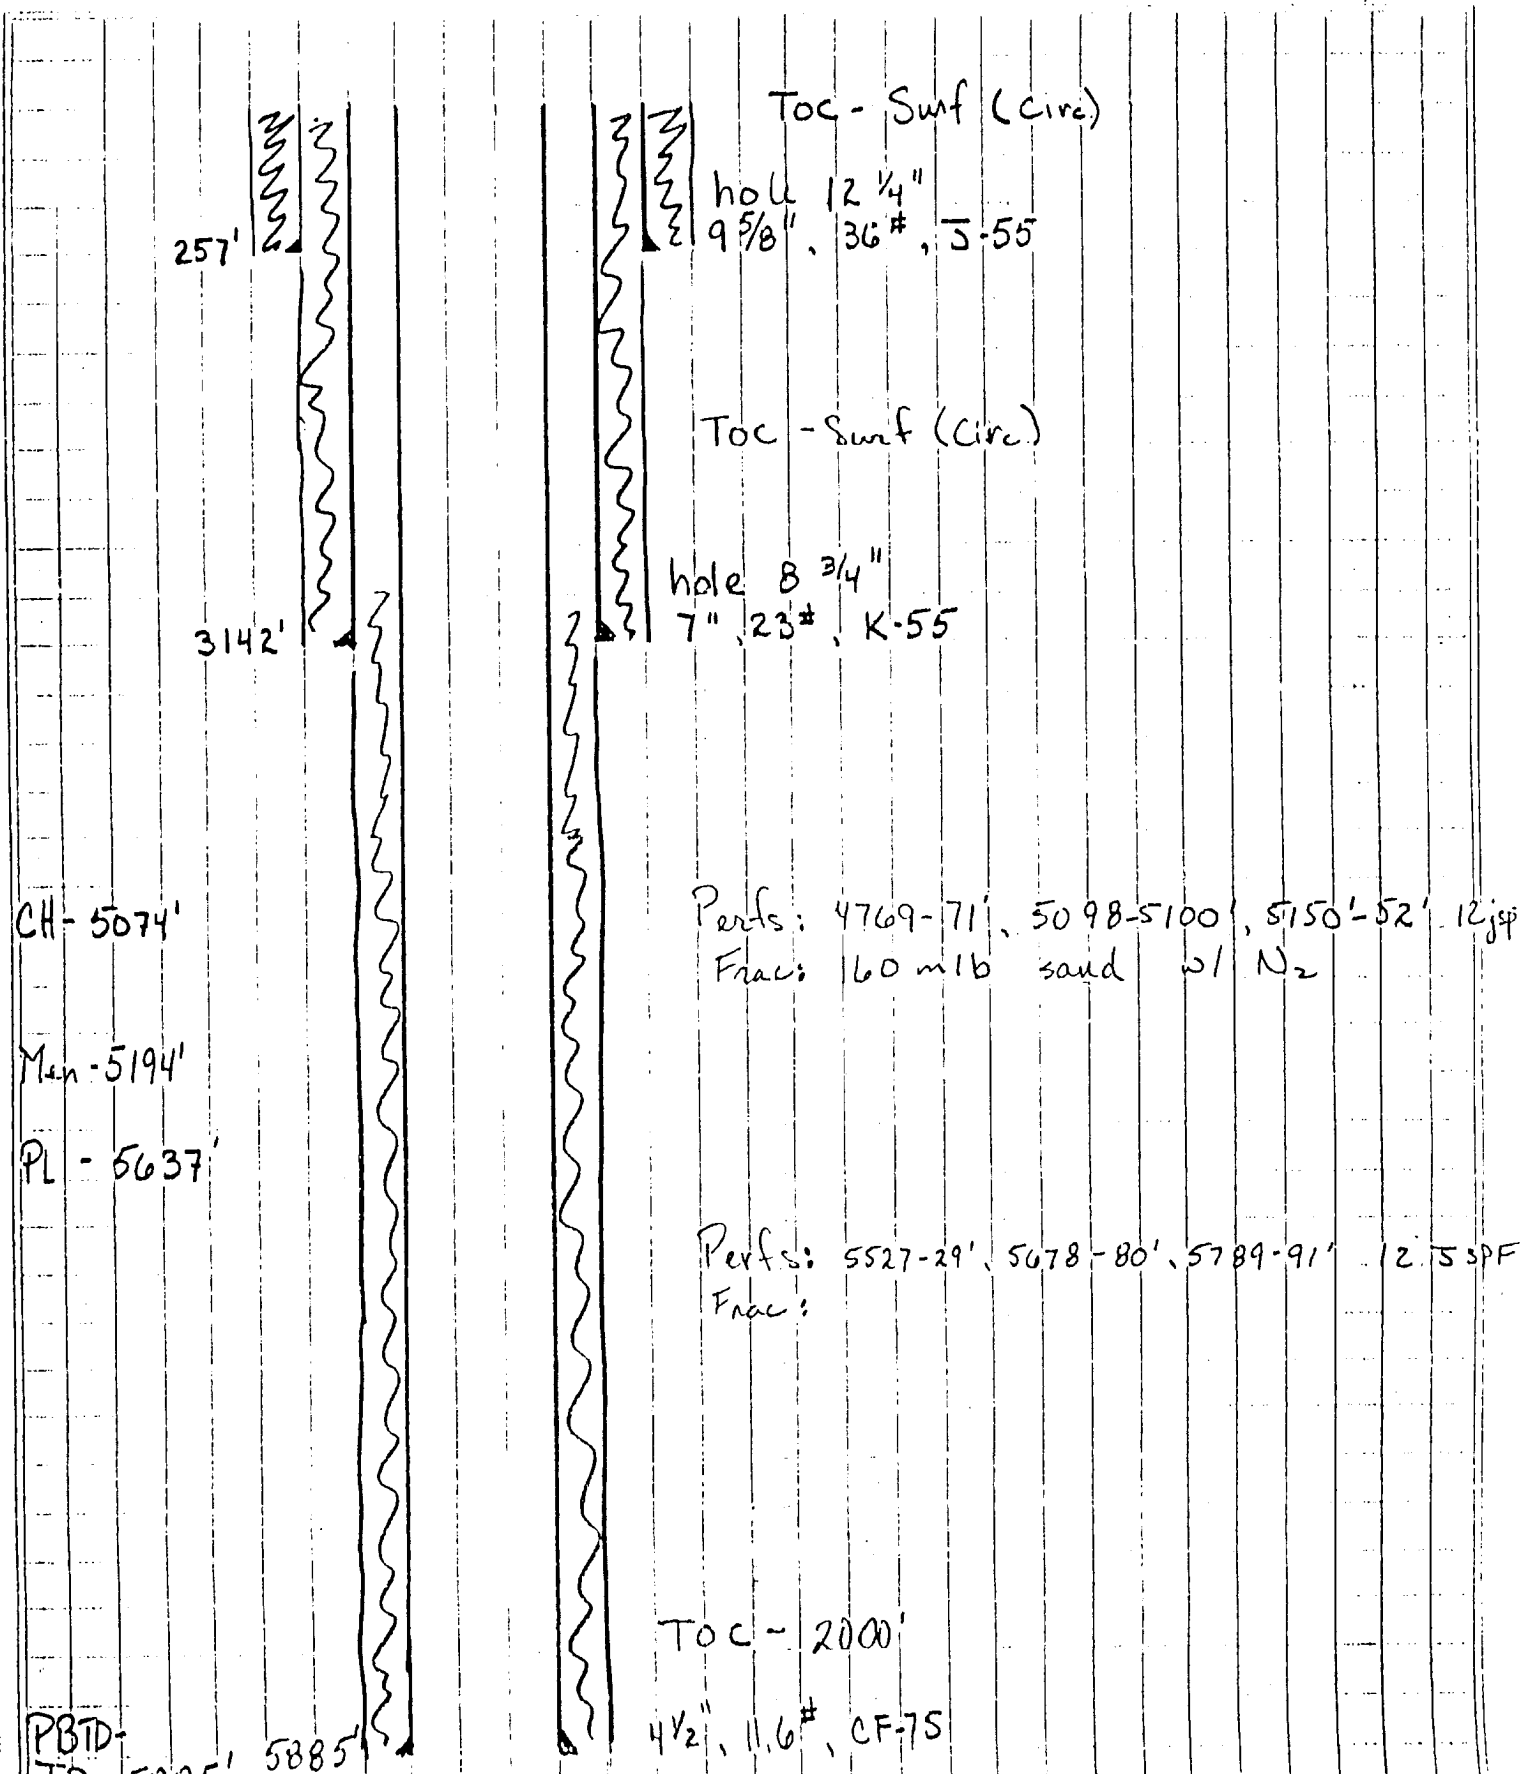 Toc - Surf (circ.)
hole 12 1/4"
9 5/8", 36#, J-55
257'
Toc - Surf (Circ.)
hole 8 3/4"
7", 23#, K-55
3142'
CH - 5074'
Perfs: 4769-71', 5098-5100', 5150'-52' 12 jsp
Frac: 160 mlb sand w/ N2
Men - 5194'
PL - 5637'
Perfs: 5527-29', 5678-80', 5789-91' 12
Frac:
TOC - 2000'
4 1/2", 11.6#, CF-75
PBTD-
5885'